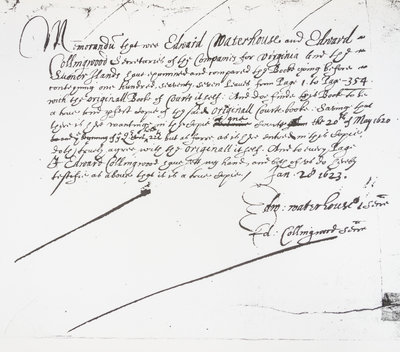 Memorandū that wee Edward Waterhouse and Edward
Collingwood Secretaries of the Companies for Virginia and the
Sumer Islands haue examined and compared the Booke going before
conteyning one hundred seventy seven Leaues from Page 1 to Page 354
with the originall Booke of Courts itself. And doe finde this Booke to be
a true and Copie of the said originall Courte booke. Saving that
there is wanting in the Copie the 20th of May 1620
and of the but as farre as is entred in this Copie
doth truely agree with the originall it self. And to every Page
I Edward Collingwood haue sett my hand, and both of vs do
testifie as aboue that it is a true Copie. Jan. 28 1623.
Edw: waterhouse Secre
Ed: Collingwood Secre